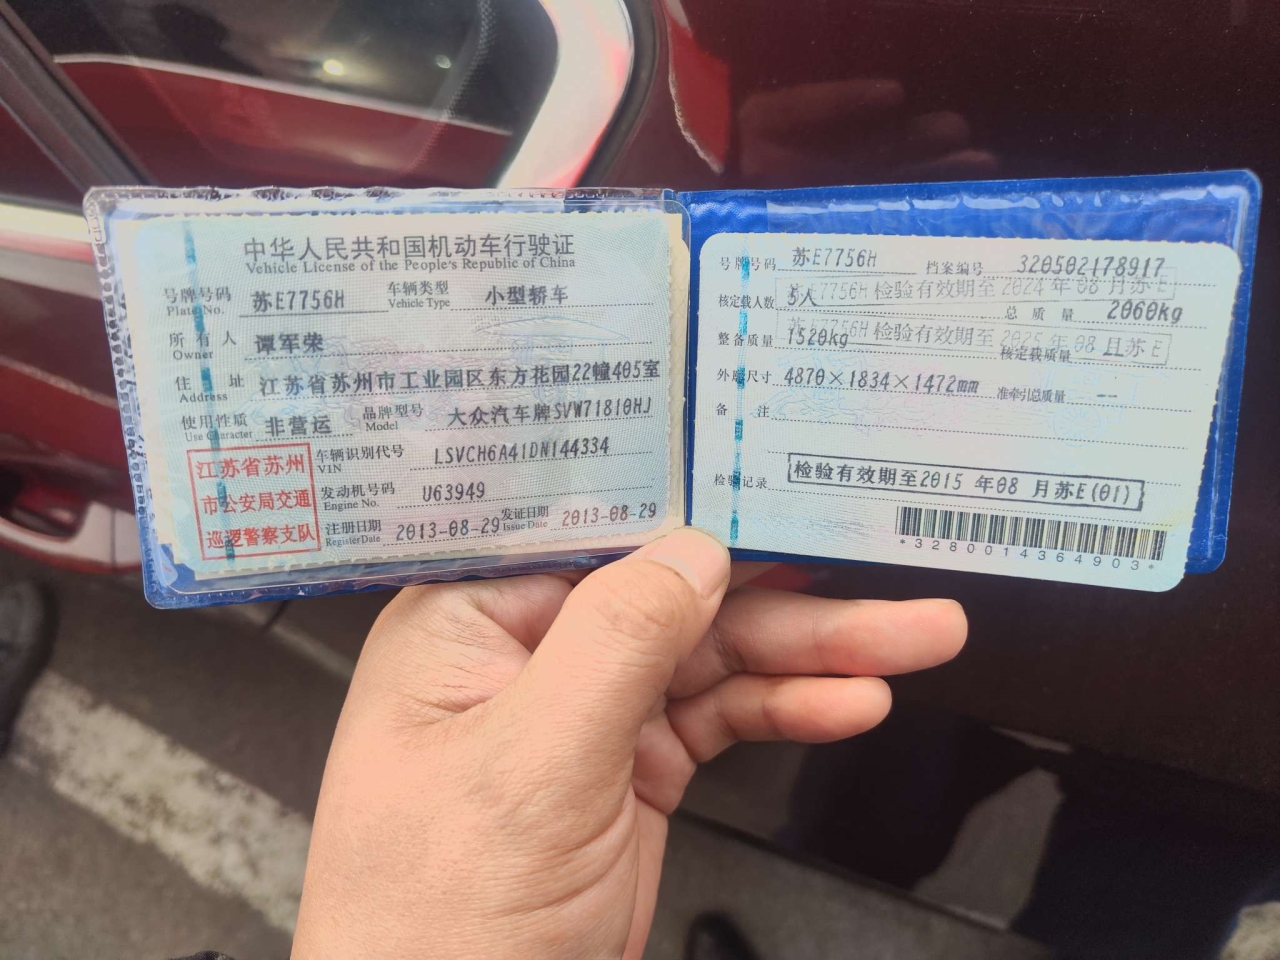 中华人民共和国机动车行驶证
Vehicle License of the People's Republic of China
号牌号码 Plate No. 苏E7756H 车辆类型 Vehicle Type 小型轿车
所有人 Owner 谭军荣
住址 Address 江苏省苏州市工业园区东方花园22幢405室
使用性质 Use Character 非营运 品牌型号 Model 大众汽车牌SVW71810HJ
车辆识别代号 VIN LSVCH6A41DN144334
发动机号码 Engine No. U63949
注册日期 Register Date 2013-08-29 发证日期 Issue Date 2013-08-29
江苏省苏州
市公安局交通
巡逻警察支队
号牌号码 苏E7756H 档案编号 320502178917
苏E7756H 检验有效期至2024年08月苏E
核定载人数 5人 总质量 2060kg
苏E7756H 检验有效期至2025年08月苏E
整备质量 1520kg 核定载质量 --
外廓尺寸 4870×1834×1472mm 准牵引总质量 --
备注
检验记录 检验有效期至2015年08月苏E(01)
*3280014364903*